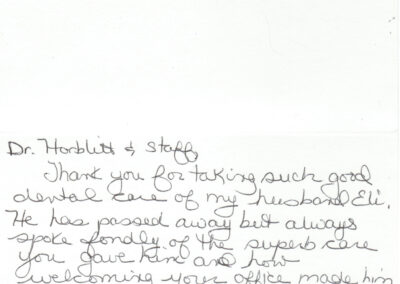 Dr. Horblitt & Staff,
Thank you for taking such good
dental care of my husband Eli.
He has passed away but always
spoke fondly of the superb care
you gave him and how
welcoming your office made him